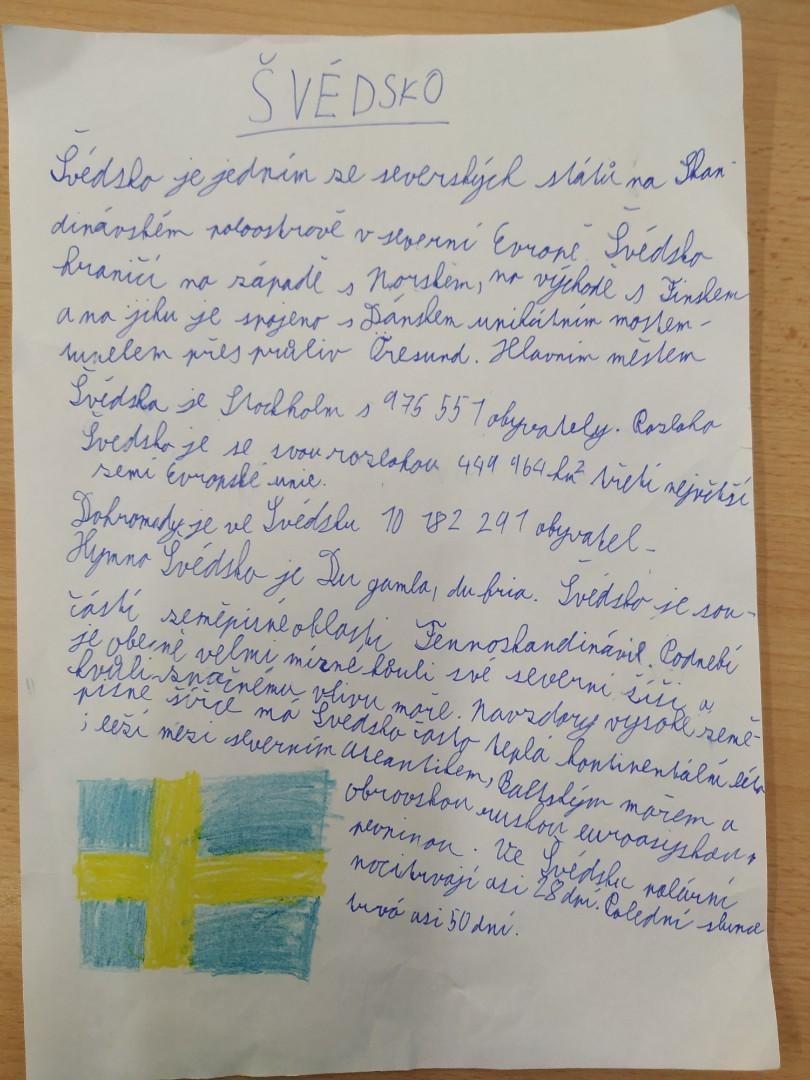 ŠVÉDSKO
Švédsko je jedním ze severských států na Skan-
dinávském poloostrově v severní Evropě. Švédsko
hraničí na západě s Norskem, na východě s Finskem
a na jihu je spojeno s Dánskem unikátním mostem-
tunelem přes průliv Öresund. Hlavním městem
Švédska je Stockholm s 975 551 obyvately. Rozloha
Švedsko je se svou rozlohou 449 964 km² třetí největší
zemí Evropské unie.
Dohromady je ve Švédsku 10 182 291 obyvatel-
Hymna Švédska je Du gamla, du fria. Švédsko je sou-
částí zeměpisné oblasti Fennoskandinávie. Podnebí
je obecně velmi mírné kvůli své severní šíři a
kvůli značnému vlivu moře. Navzdory vysoké země-
pisné šířce má Švedsko často teplá kontinentální léta
; leží mezi severním Atlantikem, Baltským mořem a
obrovskou ruskou euroasijskou
pevninou. Ve Švédsku polární
noci trvají asi 28 dní. Polední slunce
trvá asi 50 dní.